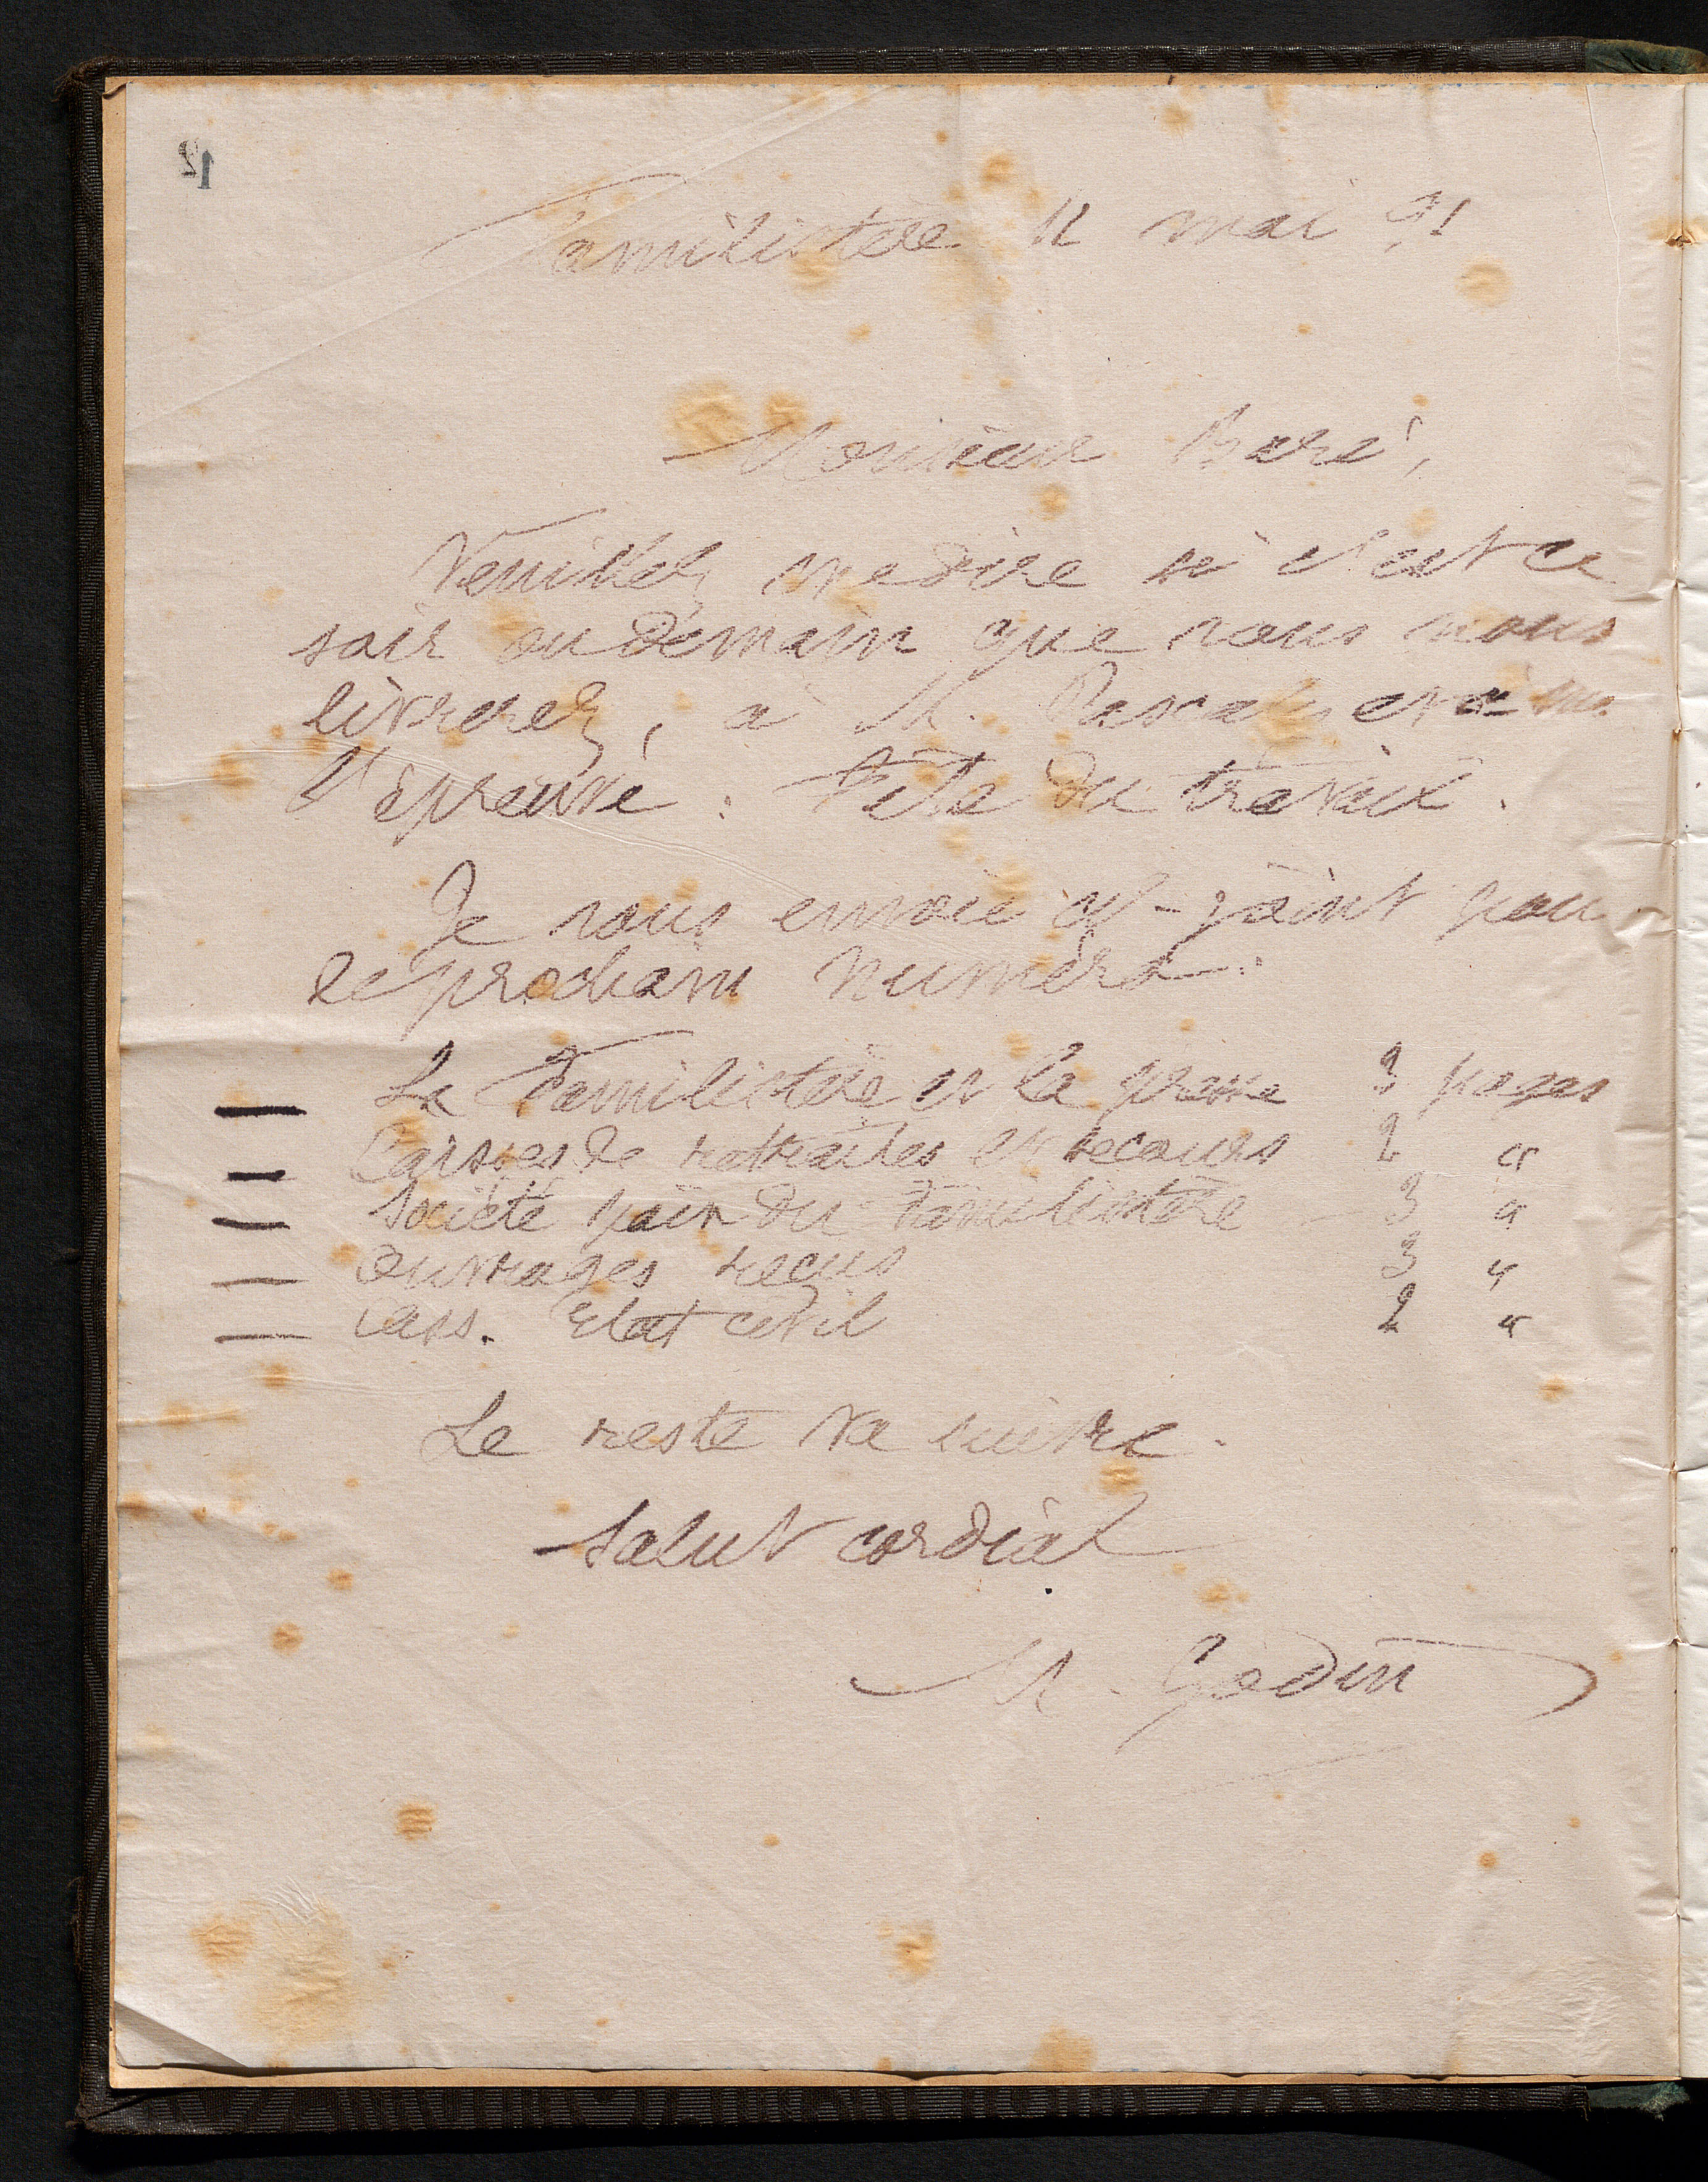 12
Familistère 12 mai 91
Monsieur Baré,
Veuillez me dire si c'est ce
soir ou demain que vous nous
livrerez, à M. Pascaly et à moi
l'épreuve : Fête du travail.
Je vous envoie ci-joint pour
le prochain numéro :
— Le Familistère et la presse 3 pages
— Caisses de retraites et secours 2 "
— Société paix du Familistère 3 "
— Ouvrages reçus 3 "
— Cass. Etat civil 2 "
Le reste va suivre.
Salut cordial
M. Godin